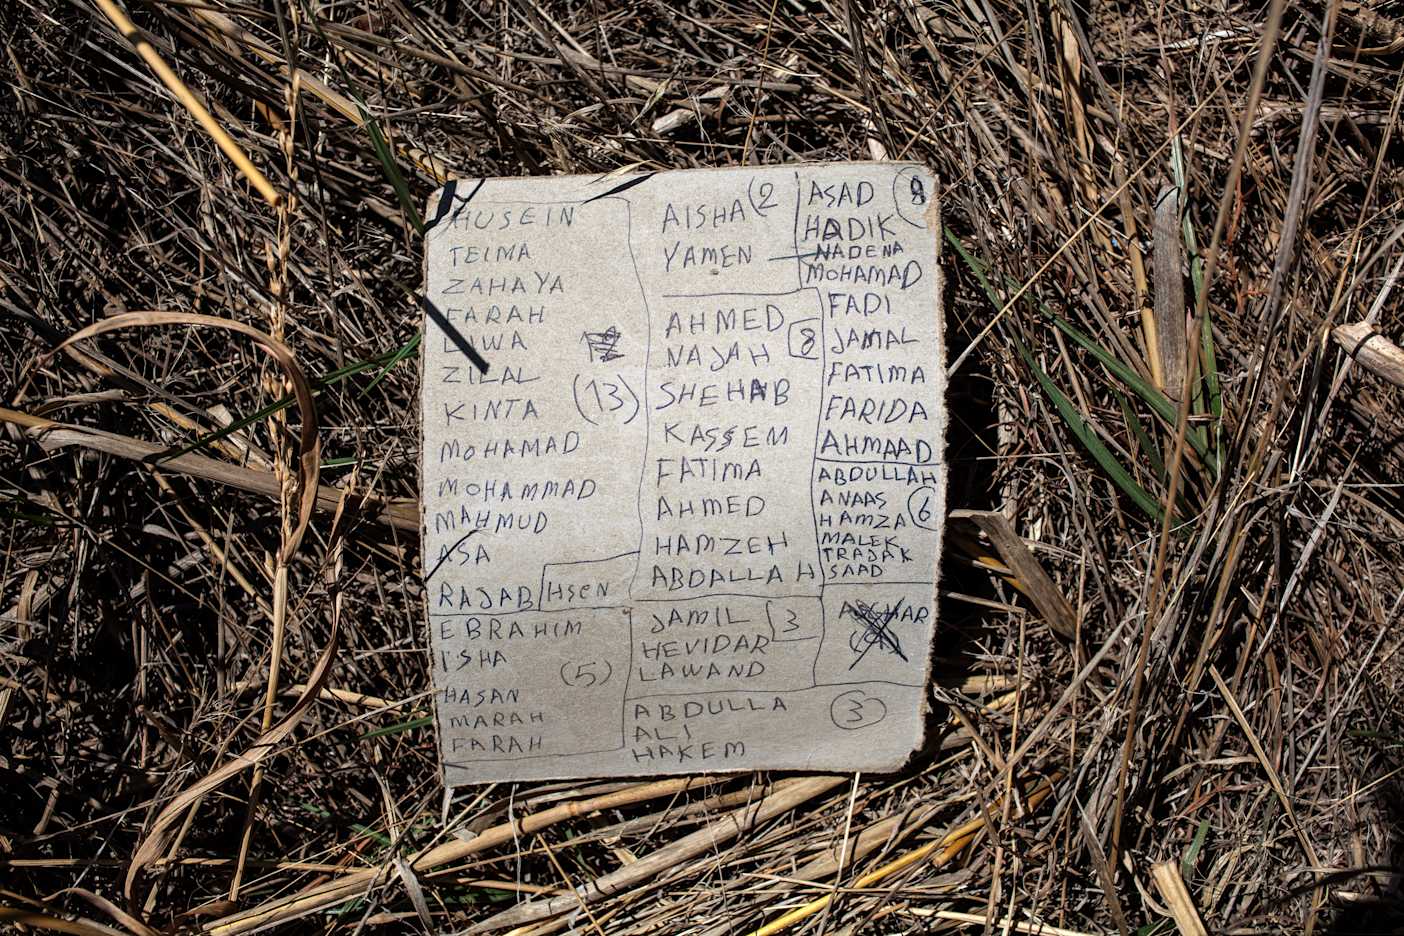 HUSEIN
TEIMA
ZAHAYA
FARAH
LIWA
ZILAL
(13)
KINTA
MOHAMAD
MOHAMMAD
MAHMUD
ASA
RAJAB HSEN
EBRAHIM
ISHA
(5)
HASAN
MARAH
FARAH
AISHA (2
YAMEN
AHMED
8
NAJAH
SHEHAB
KASSEM
FATIMA
AHMED
HAMZEH
ABDALLAH
JAMIL 3
HEVIDAR
LAWAND
ABDULLA 3
ALI
HAKEM
ASAD
HADIK
NADENA
MOHAMAD
FADI
JAMAL
FATIMA
FARIDA
AHMAAD
ABDULLAH
ANAAS 6
HAMZA
MALEK
TRAJAK
SAAD